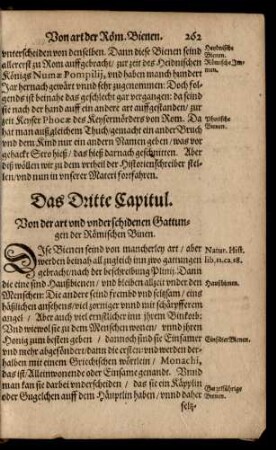 Von art der Röm. Bienen. 262
vnterscheiden von denselben. Dann diese Bienen seind
allererst zu Rom auffgebracht / zur zeit des Heidnischen
Königs Numæ Pompilij, vnd haben manch hundert
Jar hernach gewärt vnnd sehr zugenommen: Doch fol-
gends ist beinahe das geschlecht gar vergangen: da seind
sie nach der hand auff ein andere art auffgestanden / zur
zeit Keyser Phocæ des Keysermörders von Rom. Da
hat man auß gleichem Thuch gemacht ein ander Bruch
vnd dem Kind nur ein andern Namen geben / was vor
gehackt Stro hieß / das hieß darnach geschnitten. Aber
diß wöllen wir zu dem vrtheil der Historienschreiber stel-
len / vnd nun in vnserer Materi fortfahren.
Heydnische
Bienen.
Römische Im-
men.
Phocische
Bienen.
Das Dritte Capitul.
Von der art vnd vnderschidenen Gattun-
gen der Römischen Binen.
DIse Bienen seind von mancherley art / aber
werden beinah all zugleich inn zwo gattungen
gebracht / nach der beschreibung Plinij. Dann
die eine sind Haußbienen / vnd bleiben allzeit vnder den
Menschen: Die andere sind frembd vnd seltsam / eine
häßlichen ansehens / viel gerniger vnnd mit schärpfferem
angel / Aber auch viel ernstlicher inn jhrem Binkorb:
Vnd wiewol sie zu dem Menschen wenen / vnnd jhren
Honig zum besten geben / dannoch sind sie Einsamer
vnd mehr abgesöndert / dann die ersten: vnd werden der-
halben mit einem Griechischen wörtlein / Monachi,
das ist / Alleinwonende oder Einsame genande. Vnnd
man kan sie darbei vnderscheiden / das sie ein Käpplin
oder Gugelchen auff dem Häuptlin haben / vnnd daher
selz-
Natur. Hist.
lib. 11. ca. 18.
Haußbienen.
Einsidler Bienen.
Bienen.